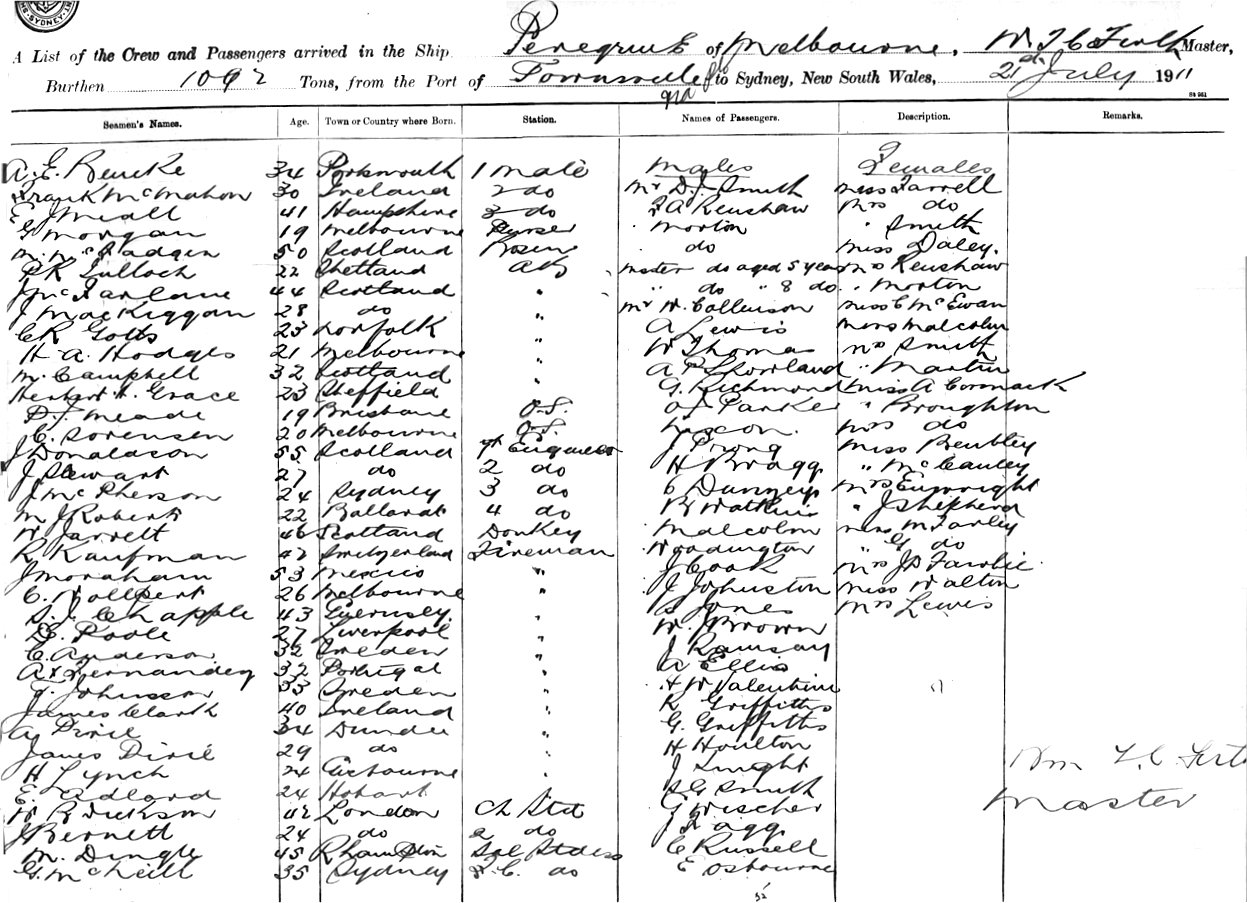 SYDNEY
A List of the Crew and Passengers arrived in the Ship Peregrine of Melbourne, W T C Firth Master,
Burthen 1092 Tons, from the Port of Townsville to Sydney, New South Wales, 21st July 1911
Seamen's Names. Age. Town or Country where Born. Station. Names of Passengers. Description. Remarks.
A. E. Rencke 34 Portsmouth 1 Mate Males Females
Frank McMahon 30 Ireland 2 do Mr D. J. Smith Miss Farrell
E J Miall 41 Hampshire 3 do F A Renshaw Mrs do
G Morgan 19 Melbourne Purser Morton " Smith
M. McFadgen 50 Scotland Bosen do Miss Daley.
P R Tulloch 22 Shetland AB Master do aged 5 years Mrs Renshaw
J McFarlane 44 Scotland " " do " 8 do " Morton
J MacKiggan 28 do " Mr W. Collenson Miss C McEwan
C R Gotts 23 Norfolk " A Lewis Malcolm
H A. Hodges 21 Melbourne " W Thomas Mrs Smith
M. Campbell 32 Scotland " A P Martin
Herbert H. Grace 23 Sheffield " G. Richmond Miss A Cormack
D. J. Meade 19 Brisbane O.S. O J Parker " Broughton
C. Sorensen 20 Melbourne O.S. Mrs do
J Donaldson 55 Scotland Engineer J Prong Miss Bentley
J Stewart 27 do 2 do H Bragg " McCauley
J McPherson 24 Sydney 3 do C Mrs Enwright
M J Roberts 22 Ballarat 4 do R Watkins " J Shepherd
W Jarrett 46 Scotland Donkey Malcolm M Farley
R Kaufman 42 Switzerland Fireman Waddington " G do
J Moraham 53 Mexico " J Cook Mrs J D
C. Wollpert 26 Melbourne " J Johnston Miss Walton
S. J. Chapple 43 Guernsey. " Jones Mrs Lewis
E. Poole 27 Liverpool " W. J Brown
C. Anderson 32 Sweden " J Ramsay
A Fernandez 32 Portugal " A Ellis
J. Johnsson 33 Sweden " H W Valentine
James Clark 40 Ireland " R Griffiths
A Pirie 34 Dundee " G. Griffiths
James Pirie 29 do " H Houlton
H Lynch 24 " J Wm T. C. Firth
E. Adlard 24 Hobart " S G Smith Master
W R Dickson 42 London Ch Std G Wischer
J Bennett 24 do 2 do J Fagg
M. Dingle 45 R'hampton Sal Stdess C Russell
G. McNeill 35 Sydney F. C. do E Osbourne
52